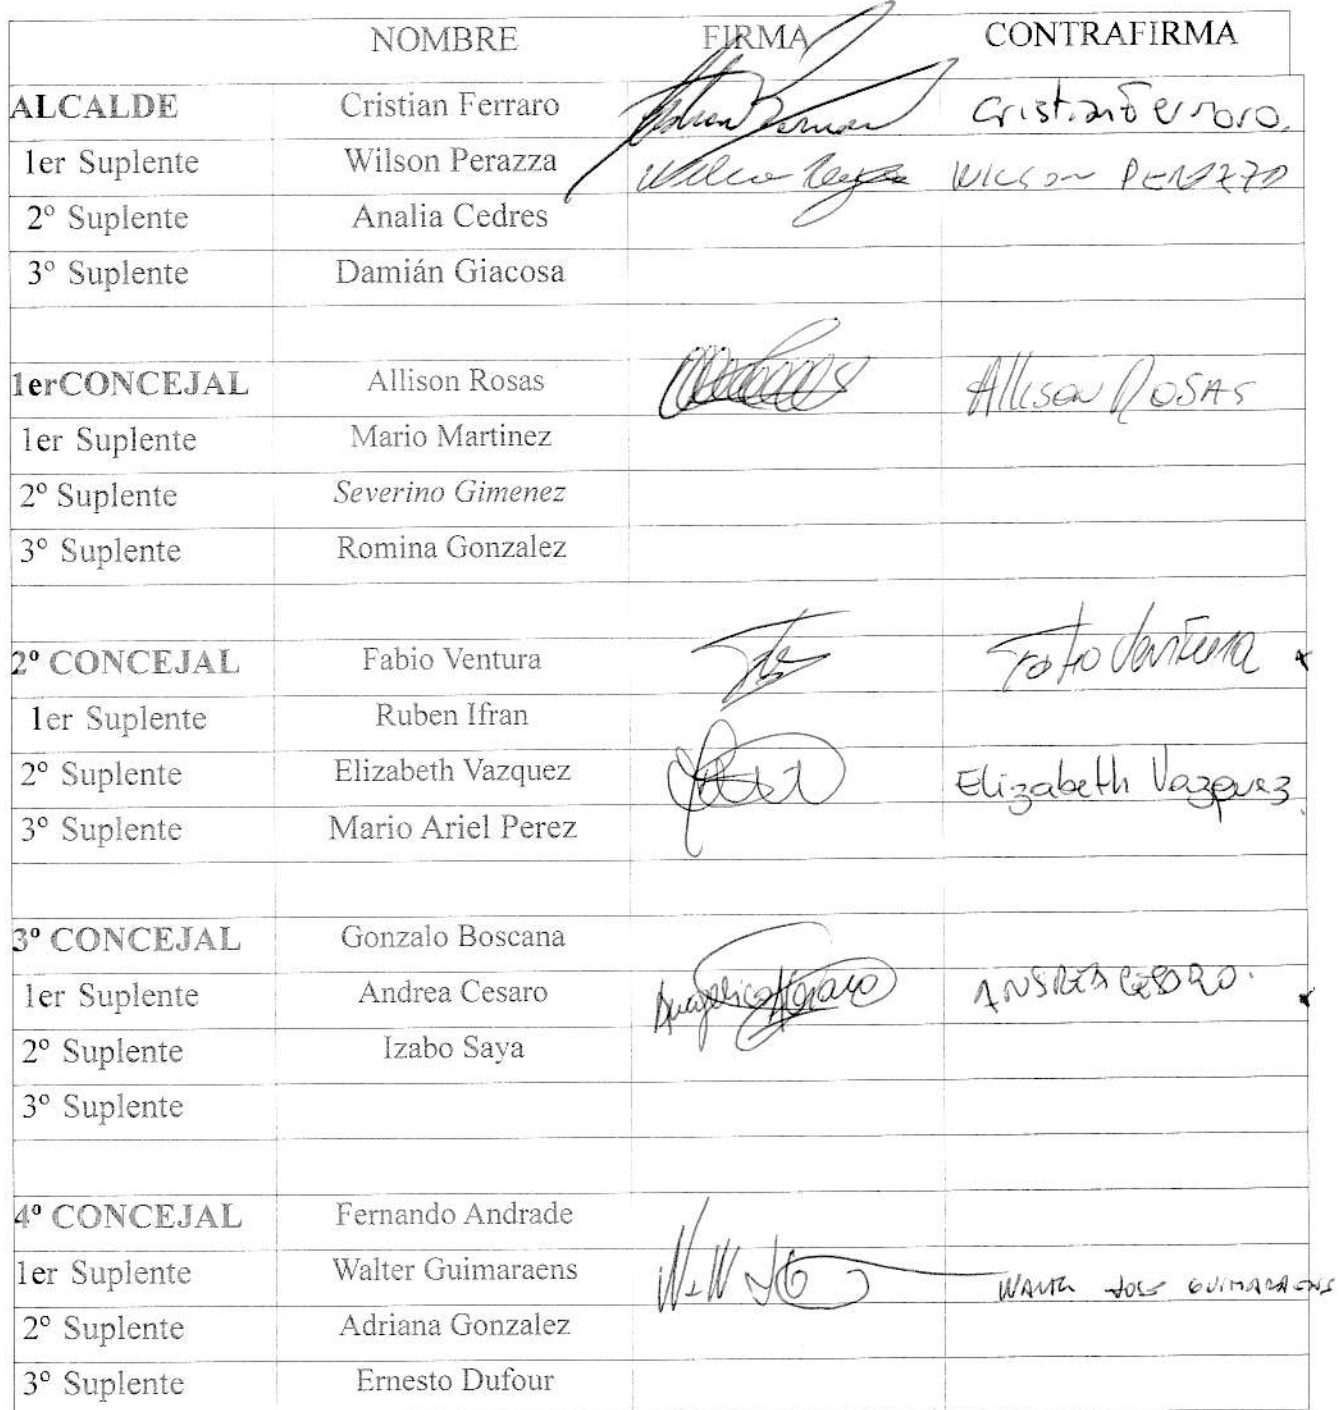 NOMBRE FIRMA CONTRAFIRMA
ALCALDE Cristian Ferraro Cristian Ferraro.
1er Suplente Wilson Perazza WILSON PERAZZA
2º Suplente Analia Cedres
3º Suplente Damián Giacosa
1erCONCEJAL Allison Rosas Allison ROSAS
1er Suplente Mario Martinez
2º Suplente Severino Gimenez
3º Suplente Romina Gonzalez
2º CONCEJAL Fabio Ventura Fabio Ventura
1er Suplente Ruben Ifran
2º Suplente Elizabeth Vazquez Elizabeth Vazquez
3º Suplente Mario Ariel Perez
3º CONCEJAL Gonzalo Boscana
1er Suplente Andrea Cesaro ANDREA CESARO.
2º Suplente Izabo Saya
3º Suplente
4º CONCEJAL Fernando Andrade
1er Suplente Walter Guimaraens WALTER JOSE GUIMARAENS
2º Suplente Adriana Gonzalez
3º Suplente Ernesto Dufour